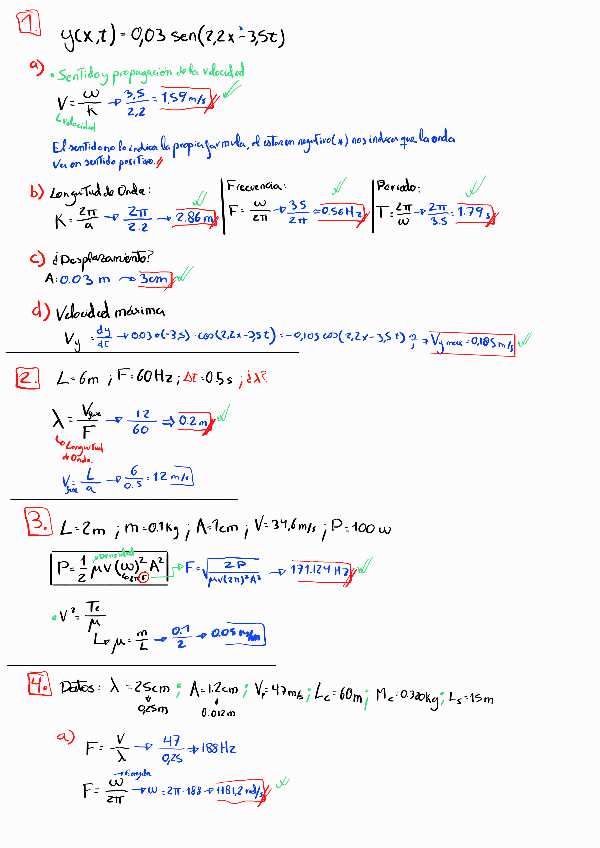 1.
y(x,t) = 0,03 sen(2,2x - 3,5t)
a)
• Sentido y propagación de la velocidad
V = ω/K → 3,5/2,2 = 1,59 m/s
↳ velocidad
El sentido no lo indica la propia formula, el estar en negativo(x) nos indica que la onda
va en sentido positivo.
b) Longitud de Onda: Frecuencia: Periodo:
K = 2π/a → 2π/2.2 → 2.86 m F = ω/2π → 3.5/2π = 0.56 Hz T = 2π/ω → 2π/3.5 → 1.79 s
c) ¿Desplazamiento?
A: 0.03 m → 3cm
d) Velocidad máxima
Vy = dy/dt → 0.03 • (-3,5) · cos(2,2x - 3,5t) = -0,105 cos(2,2x - 3,5t) → Vy max = 0,105 m/s
2. L = 6m ; F = 60Hz ; Δt = 0.5 s ; ¿λ?
λ = V/F → 12/60 ⇒ 0.2 m
↳ Longitud
de Onda.
V = L/a → 6/0.5 = 12 m/s
3. L = 2m ; m = 0.1 kg ; A = 1cm ; V = 34,6 m/s ; P = 100 w
→ Densidad
P = 1/2 μv(ω)² A² → F = √(2P/μv(2π)²A²) → 171.124 Hz
ω2πF
• V² = Tc/μ
↳ μ = m/L → 0.1/2 → 0.05 kg/m
4. Datos: λ = 25cm ; A = 1.2cm ; Vp = 47 m/s ; Lc = 60m ; Mc = 0.320kg ; Ls = 15m
0,25m 0.012m
a) F = V/λ → 47/0,25 → 188 Hz
F = ω/2π → ω = 2π · 188 → 1181,2 rad/s